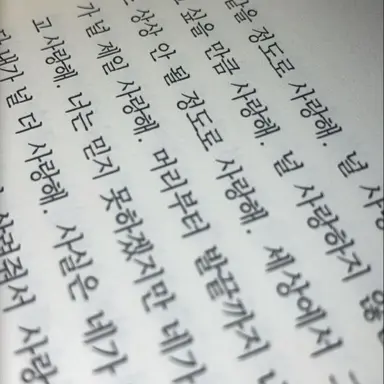 정도로 사랑해. 널
싶을 만큼 사랑해. 널 사랑하지
상상 안 될 정도로 사랑해. 세상에서
가 널 제일 사랑해. 머리부터 발끝까지
고 사랑해. 너는 믿지 못하겠지만 네가
내가 널 더 사랑해. 사실은 네가
사랑